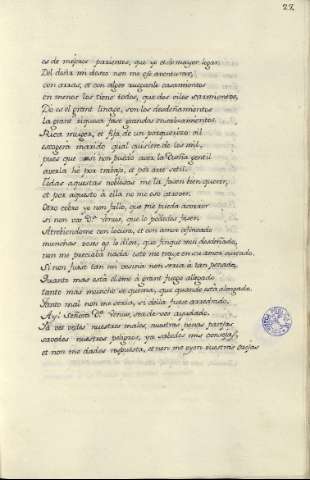 27.
es de mejores parientes, que yo et de mayor logar
Del desir mi deseo non me oso aventurar,
con arras, et con algos rueganle casamientos
en menos los tiene todos, que dos viles sarmientos,
Do es el grant linage, son los desdeñamientos
la grant riqueza fase grandes ensalsamientos.
Rica muger, et fija de un porquerizo vil
escogera marido qual quisiere de los mil,
pues que ansi non puedo aver la Dueña gentil
averla he por trabajo, et por arte sotil.
Todas aquestas noblesas me la fasen bien querer,
et por aquesto à ella no me oso atrever.
Otro cobro yo non fallo, que me pueda acorrer
si non vos D.ª Venus, que lo podedes faser.
Atreviendome con locura, et con amor afincado
munchas veses ge lo dixe, que finque mal desdeñado,
non me preciaba nada esto me traye en su amor cuitado.
Si non fuese tan mi vesina non seria à tan penado.
Quanto mas està el ome à grant fuego allegado
tanto mas muncho se quema, que quando està alongado.
Tanto mal non me seria, si della fuese arredrado.
Ay! Señora D.ª Venus, sea de vos ayudado.
Ya ves vedes nuestros males, nuestras penas parejas
savedes nuestros peligros, ya sabedes mis consejas,
et non me dades respuesta, et nen me oyen vuestras orejas